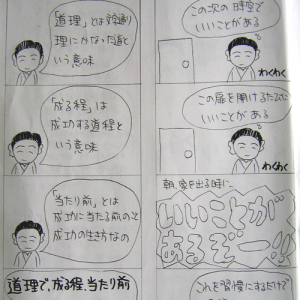 「道理」とは文字通り
理にかなった道と
いう意味
「成る程」は
成功する道程と
いう意味
「当たり前」とは
成功に当たる前のこと
成功の生き方なの
道理で、成る程、当たり前
この次の時空で
いいことがある
わくわく
この扉を開けるたびに
いいことがある
わくわく
朝、家を出る時に
いいことが
あるぞー!!
これを習慣にするだけで